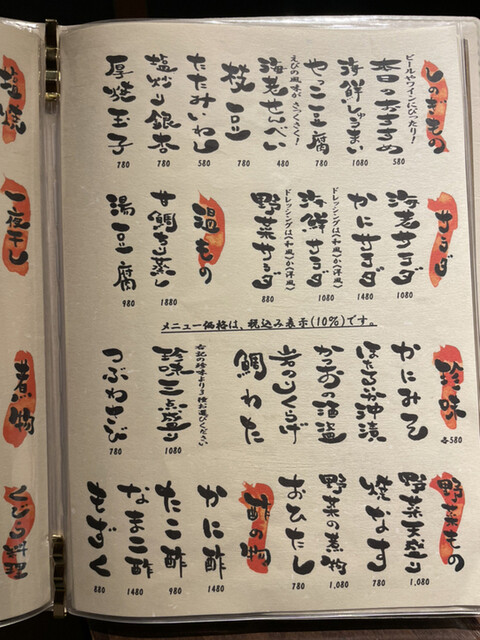 しのぎもの
ビールやワインにぴったり!
本日のおすすめ
580
海鮮しゅうまい
1080
やっこ豆腐
780
えびの風味がさっくさく!
海老せんべい
480
枝豆
780
たたみいわし
580
塩炒り銀杏
780
厚焼玉子
780
サラダ
海老サラダ
1080
かにサラダ
1480
ドレッシングは(和風)か(洋風)
海鮮サラダ
1080
ドレッシングは(和風)か(洋風)
野菜サラダ
880
温もの
甘鯛ちり蒸し
1880
湯豆腐
980
メニュー価格は、税込み表示(10%)です。
珍味
各580
かにみそ
ほたるいか沖漬
かつおの酒盗
岩のりくらげ
鯛わた
右記の珍味より3種お選びください
珍味三点盛り
1080
つぶわさび
780
野菜もの
野菜天盛り
1,080
焼なす
780
野菜の煮物
1,080
おひたし
780
酢の物
かに酢
1480
たこ酢
980
なまこ酢
1480
もずく
880
塩焼
一夜干し
煮物
くじら料理